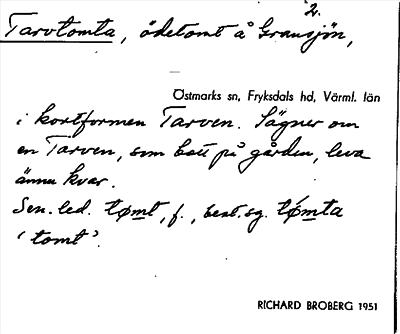 2.
Tarvtomta, ödetomt å Gransjön,
Östmarks sn, Fryksdals hd, Värml. län
i kortformen Tarven. Sägner om
en Tarven, som bott på gården, leva
ännu kvar.
Sen. led. tømt, f., best. sg. tǿmta
'tomt'.
RICHARD BROBERG 1951